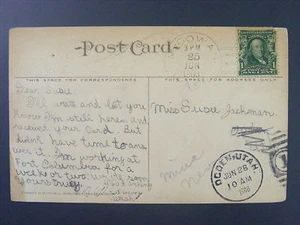 Post Card
THIS SPACE FOR CORRESPONDENCE
THIS SPACE FOR ADDRESS ONLY
3 PM
25
JUN
Dear Susie
Will write and let you
know I'm still here, and
received your Card. But
didn't have time to ans
wer it. I'm working at
Fort Columbia for a
week or two. write soon
Yours truly,
Miss Susie Jackman
OGDEN, UTAH.
JUN 28
10 AM